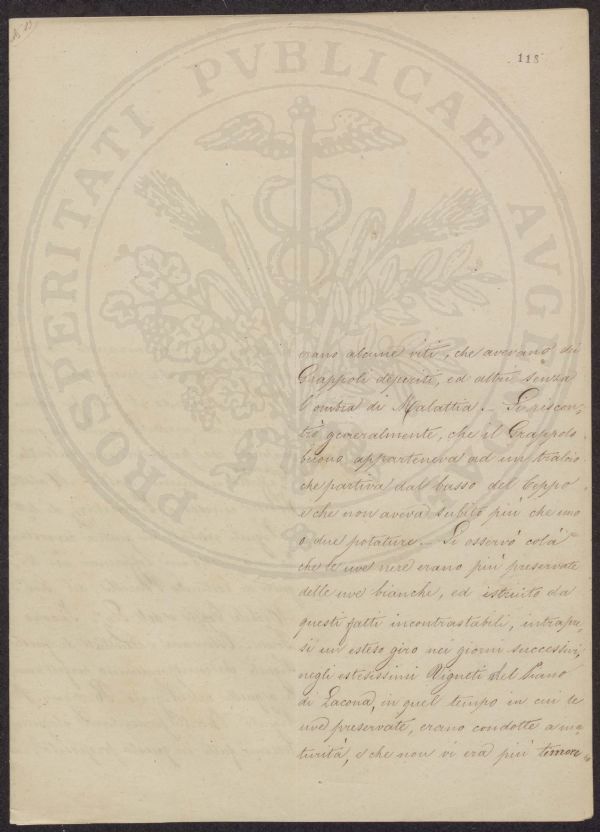 118
PROSPERITATI PVBLICAE AVGE
erano alcune viti, che avevano dei
Grappoli deperiti, ed altri senza
l'ombra di Malattia. Si riscon,
trò generalmente, che il Grappolo
buono apparteneva ad un tralcio
che partiva dal basso del Ceppo
e che non aveva subito più che una
o due potature. Si osservò colà
che le uve nere erano più preservate
delle uve bianche, ed istruito da
questi fatti incontrastabili, intrapre,
si un esteso giro nei giorni successivi,
negli estesissimi Vigneti del Piano
di Lacona, in quel tempo in cui le
uve preservate, erano condotte a ma,
turità, e che non vi era più timore